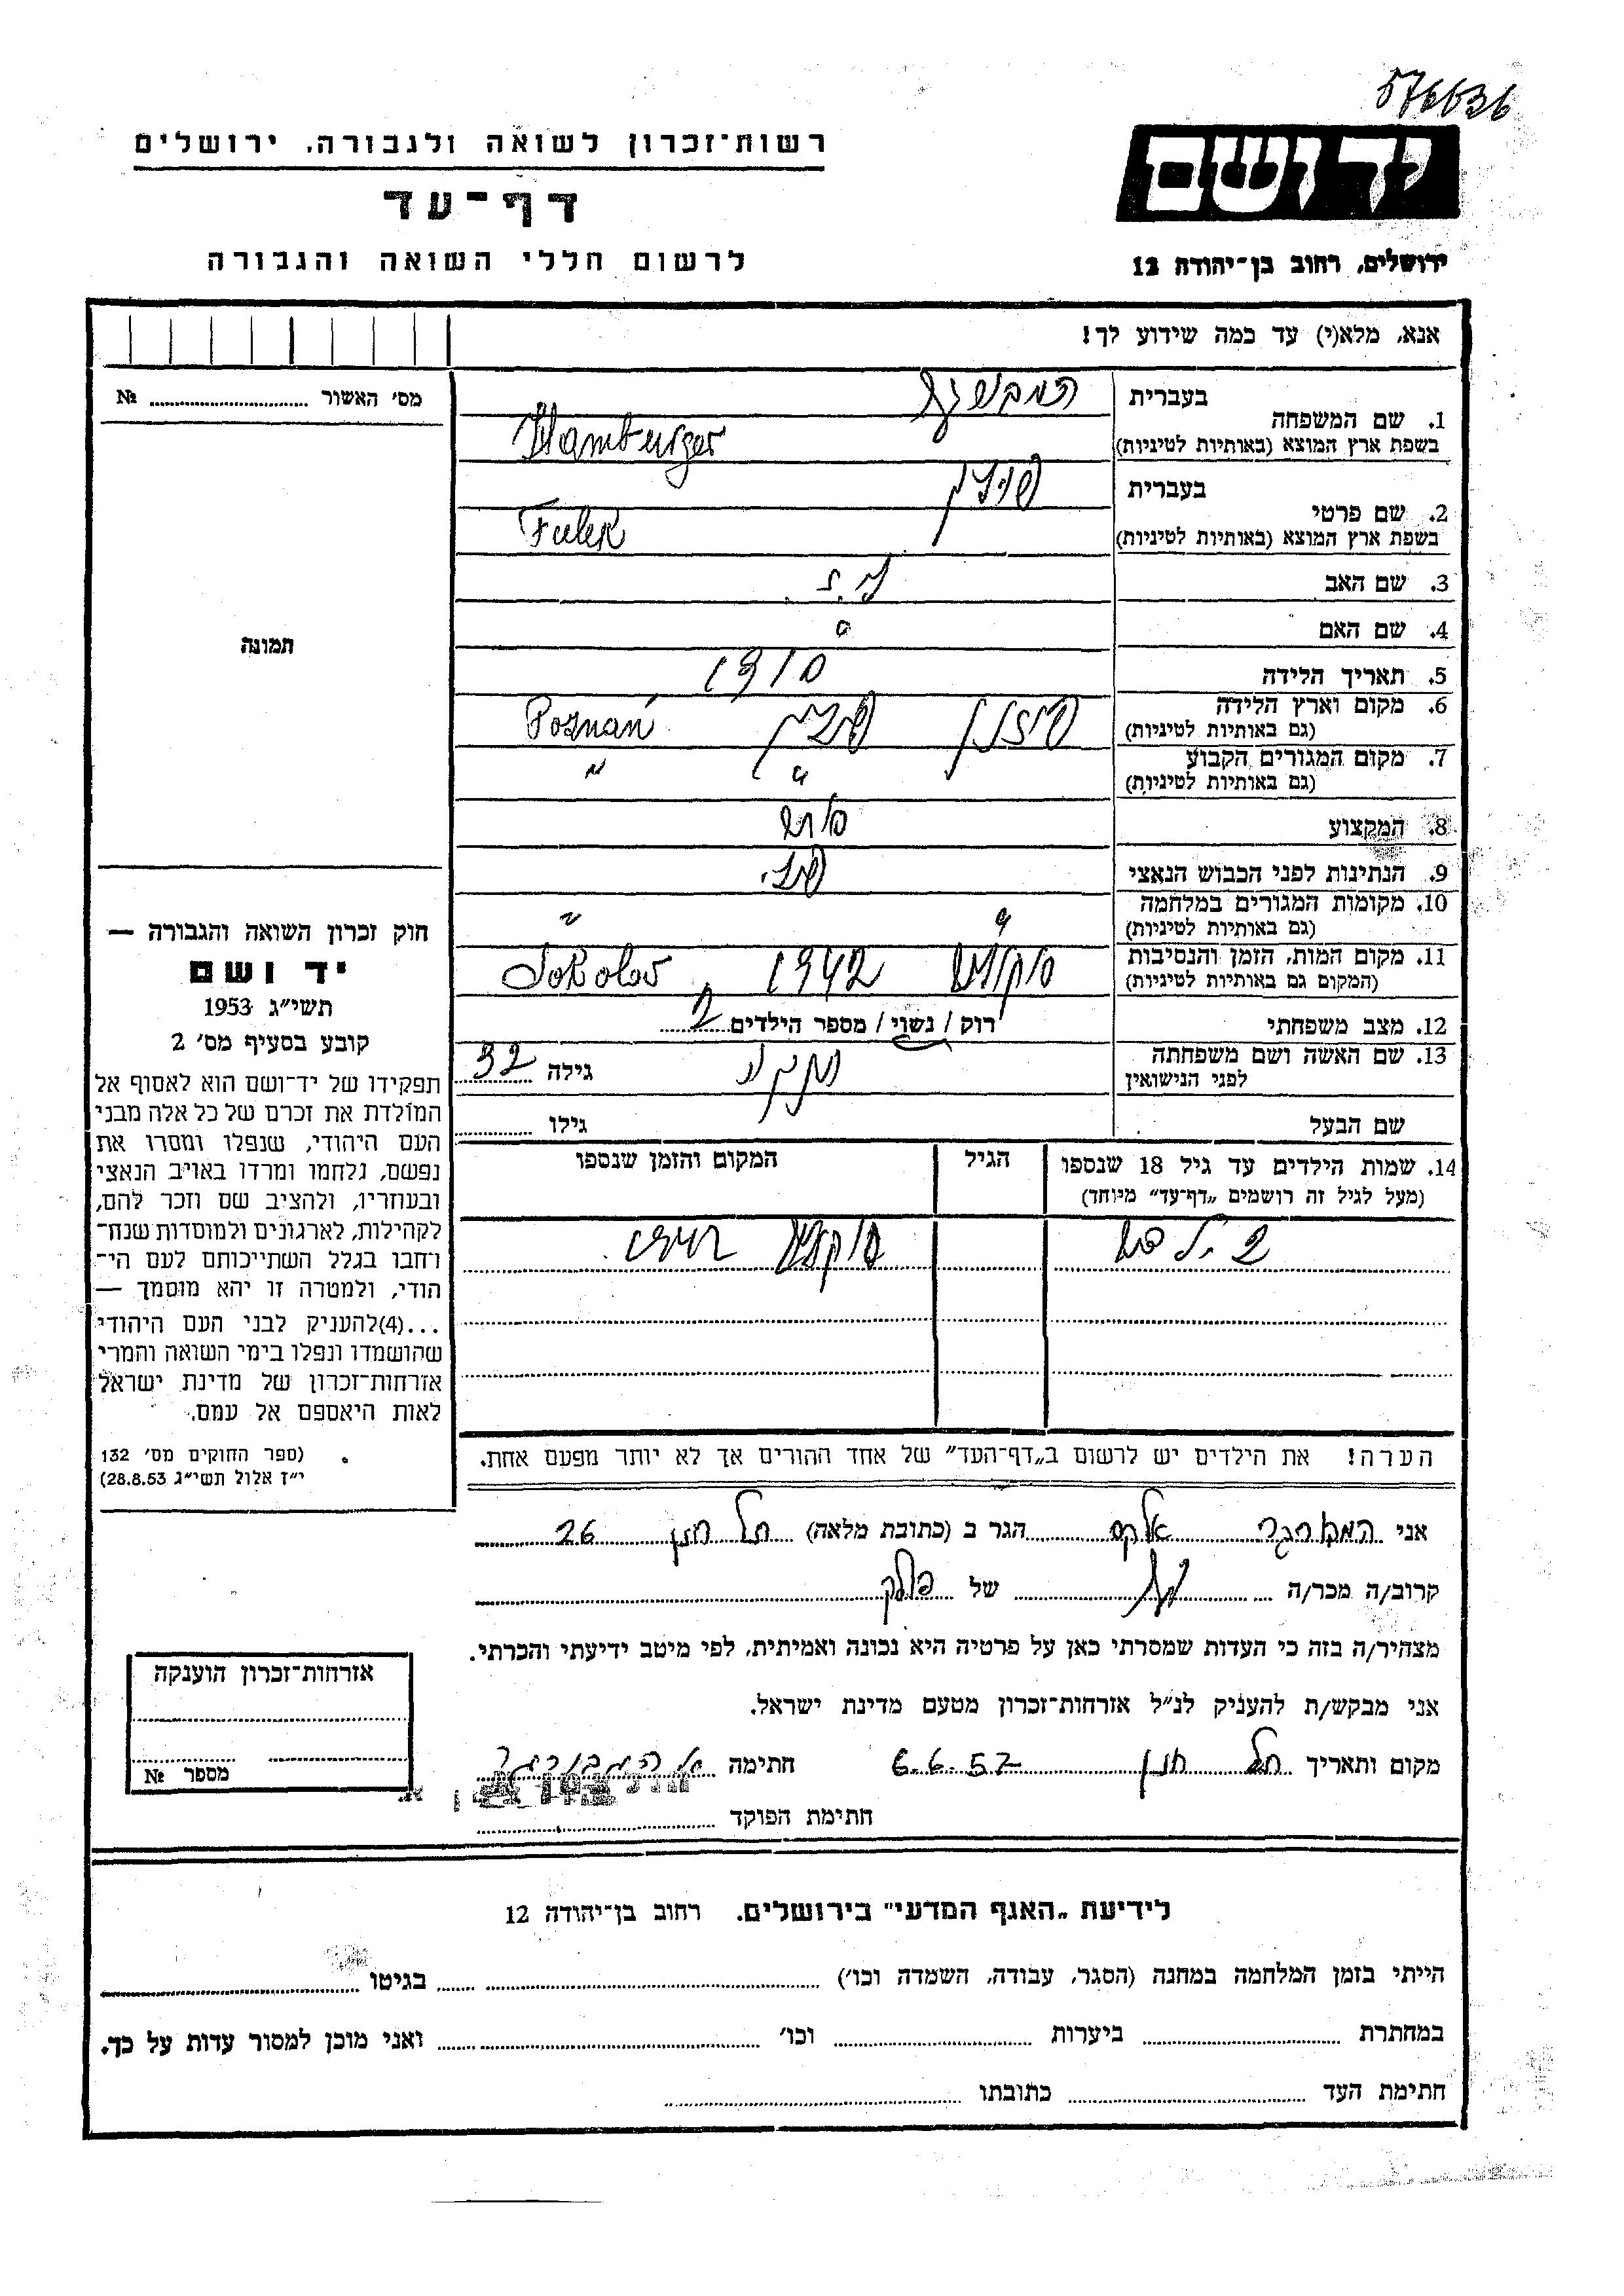 576636
יד ושם
ירושלים, רחוב בן־יהודה 12
רשות־זכרון לשואה ולגבורה, ירושלים
דף־עד
לרשום חללי השואה והגבורה
אנא, מלא(י) עד כמה שידוע לך!
מס׳ האשור ........ №
תמונה
1. שם המשפחה
בעברית
בשפת ארץ המוצא (באותיות לטיניות) Hamburger
2. שם פרטי
בעברית
בשפת ארץ המוצא (באותיות לטיניות) Fulek
3. שם האב
4. שם האם
5. תאריך הלידה 1910
6. מקום וארץ הלידה פוזנן פולין Poznań
(גם באותיות לטיניות)
7. מקום המגורים הקבוע " "
(גם באותיות לטיניות)
8. המקצוע סוחר
9. הנתינות לפני הכבוש הנאצי פול.
10. מקומות המגורים במלחמה " "
(גם באותיות לטיניות)
11. מקום המות, הזמן והנסיבות 1942 Sokolov
(המקום גם באותיות לטיניות)
12. מצב משפחתי רוק / נשוי / מספר הילדים 2
13. שם האשה ושם משפחתה
לפני הנישואין
גילה 32
שם הבעל גילו
14. שמות הילדים עד גיל 18 שנספו
(מעל לגיל זה רושמים „דף־עד״ מיוחד)
הגיל
המקום והזמן שנספו
2 ילדים
הערה! את הילדים יש לרשום ב„דף־העד״ של אחד ההורים אך לא יותר מפעם אחת.
חוק זכרון השואה והגבורה —
יד ושם
תשי״ג 1953
קובע בסעיף מס׳ 2
תפקידו של יד־ושם הוא לאסוף אל
המולדת את זכרם של כל אלה מבני
העם היהודי, שנפלו ומסרו את
נפשם, נלחמו ומרדו באויב הנאצי
ובעוזריו, ולהציב שם וזכר להם,
לקהילות, לארגונים ולמוסדות שנח־
רחבו בגלל השתייכותם לעם הי־
הודי, ולמטרה זו יהא מוסמך —
...(4) להעניק לבני העם היהודי
שהושמדו ונפלו בימי השואה והמרי
אזרחות־זכרון של מדינת ישראל
לאות היאספם אל עמם.
(ספר החוקים מס׳ 132
י״ז אלול תשי״ג 28.8.53)
אני המבורגר אלקס הגר ב (כתובת מלאה) תל חנן 26
קרוב/ה מכר/ה של פולק
מצהיר/ה בזה כי העדות שמסרתי כאן על פרטיה היא נכונה ואמיתית, לפי מיטב ידיעתי והכרתי.
אני מבקש/ת להעניק לנ״ל אזרחות־זכרון מטעם מדינת ישראל.
מקום ותאריך תל חנן 6.6.57 חתימה א המבורגר
חתימת הפוקד
אזרחות־זכרון הוענקה
מספר №
לידיעת „האגף המדעי״ בירושלים. רחוב בן־יהודה 12
הייתי בזמן המלחמה במחנה (הסגר, עבודה, השמדה וכו׳) בגיטו
במחתרת ביערות וכו׳ ואני מוכן למסור עדות על כך.
חתימת העד כתובתו